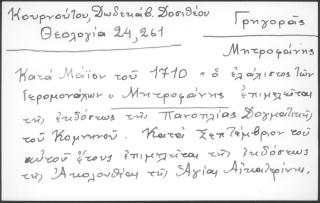 Κουρνούτου, Δωδεκάβ. Δοσιθέου
Θεολογία 24, 261
Γρηγορᾶς
Μητροφάνης
Κατὰ Μάϊον τοῦ 1710 "ὁ ἐλάχιστος τῶν
Ἱερομονάχων Μητροφάνης ἐπιμελεῖται
τῆς ἐκδόσεως τῆς Πανοπλίας Δογματικῆς
τοῦ Κομνηνοῦ. Κατὰ Σεπτέμβριον τοῦ
αὐτοῦ ἔτους ἐπιμελεῖται τῆς ἐκδόσεως
τῆς Ἀκολουθίας τῆς Ἁγίας Αἰκατερίνης.